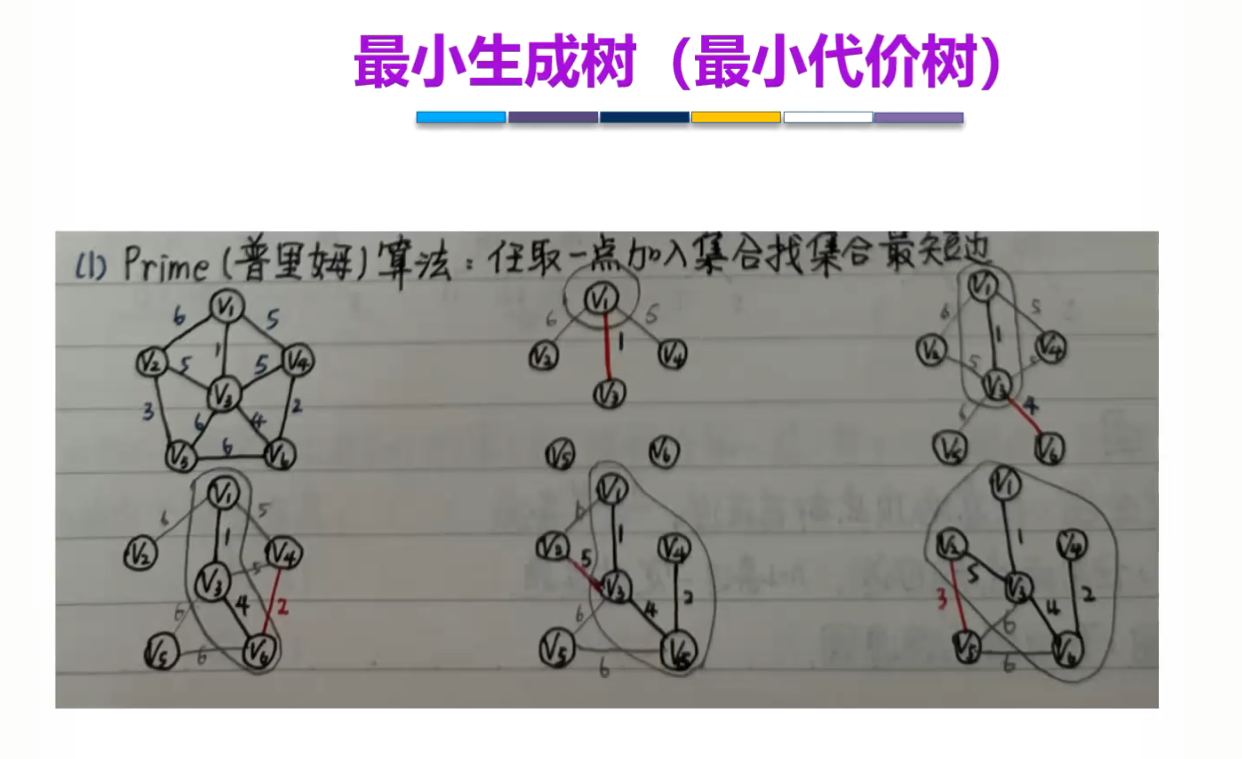 最小生成树（最小代价树）
(1) Prime(普里姆)算法：任取一点加入集合找集合最短边
V1
6 5
V2 5 1 5 V4
V3
3 6 4 2
V5 6 V6
V1
6 1 5
V2 V4
V3
V5 V6
V1
6 1 5
V2 5 V4
V3
6 4
V5 V6
V1
6 1 5
V2 V4
V3 5
6 4 2
V5 6 V6
V1
6 1
V2 5 V4
V3
6 4 2
V5 6 V5
V1
1
V2 5 V4
V3
3 6 4 2
V5 6 V6